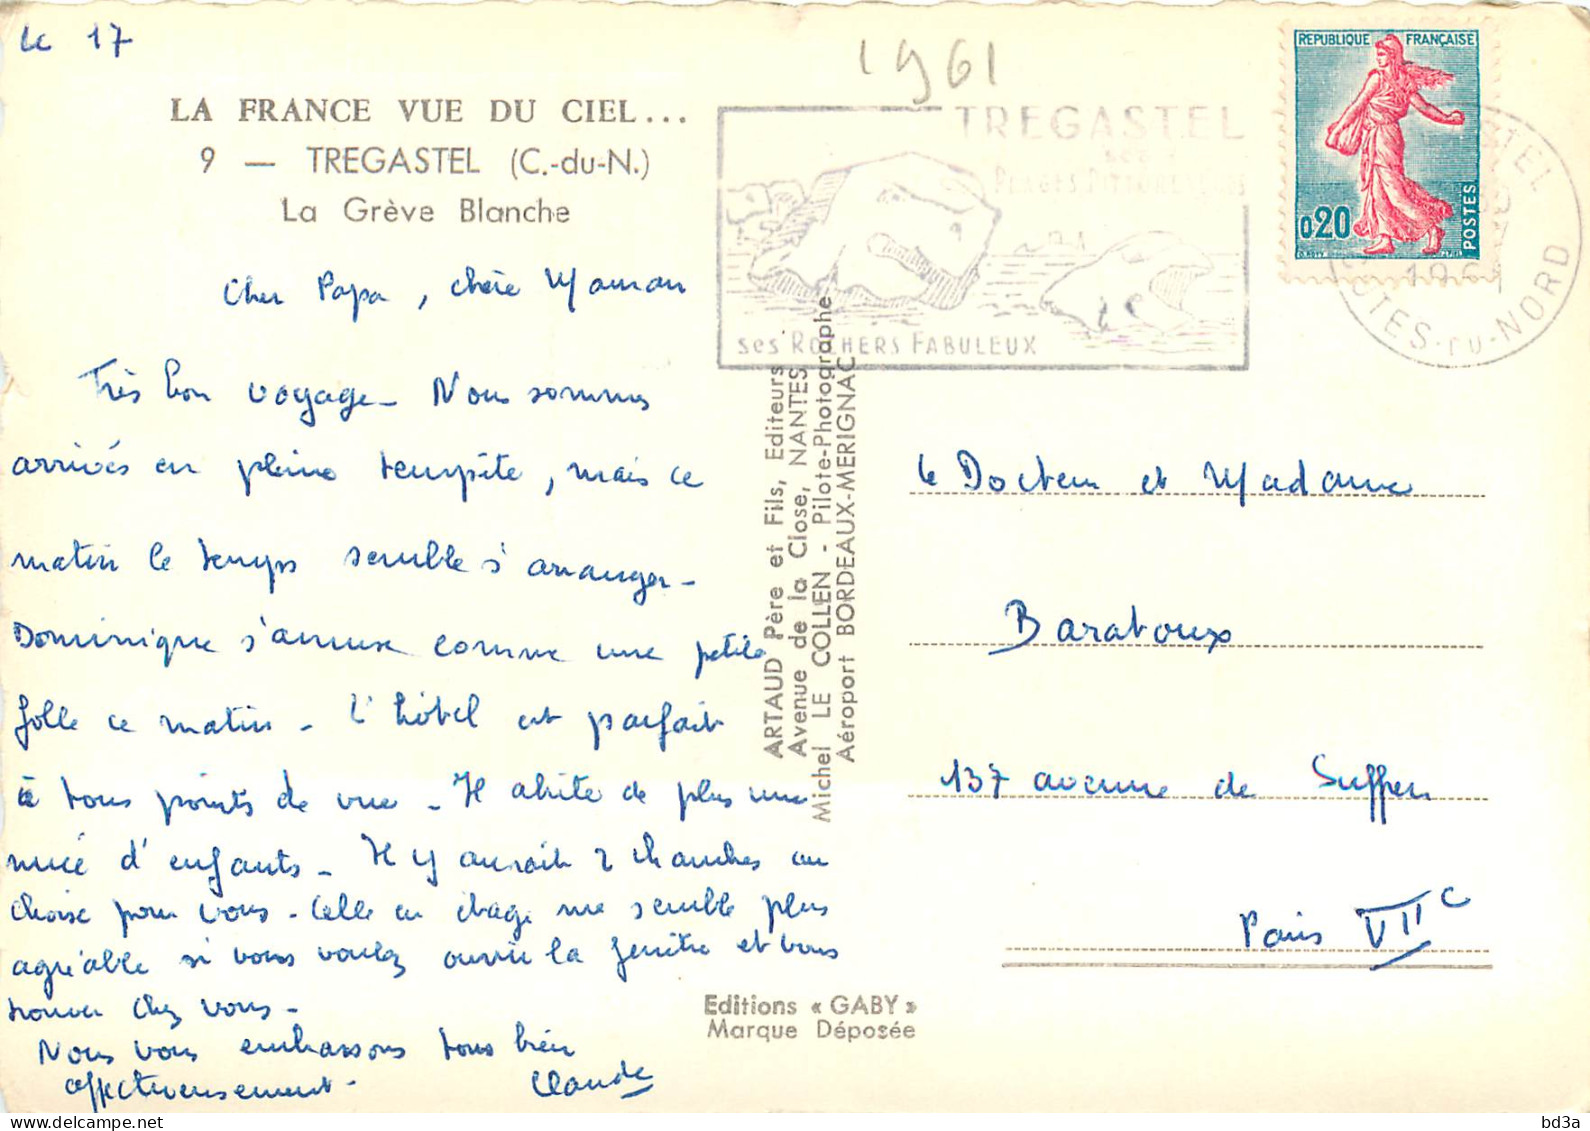 Le 17
1961
LA FRANCE VUE DU CIEL...
9 — TREGASTEL (C.-du-N.)
La Grève Blanche
TREGASTEL
ses
PLAGES PITTORESQUES
ses ROCHERS FABULEUX
REPUBLIQUE FRANÇAISE
0,20
POSTES
1961
COTES-DU-NORD
Cher Papa, chère Maman
Très bon voyage - Nous sommes
arrivés en pleine tempête, mais ce
matin le temps semble s'arranger -
Dominique s'amuse comme une petite
folle ce matin - L'hôtel est parfait
à tous points de vue - Il abrite de plus une
nuée d'enfants - Il y aurait 2 chambres au
choix pour vous - Celle en étage me semble plus
agréable si vous voulez ouvrir la fenêtre et vous
trouver chez vous -
Nous vous embrassons tous bien
affectueusement -
Claude
ARTAUD Père et Fils, Editeurs
Avenue de la Close, NANTES
Michel LE COLLEN - Pilote-Photographe
Aéroport BORDEAUX-MERIGNAC
Le Docteur et Madame
Baratoux
137 avenue de Suffren
Paris VIIe
Editions « GABY »
Marque Déposée
www.delcampe.net
bd3a